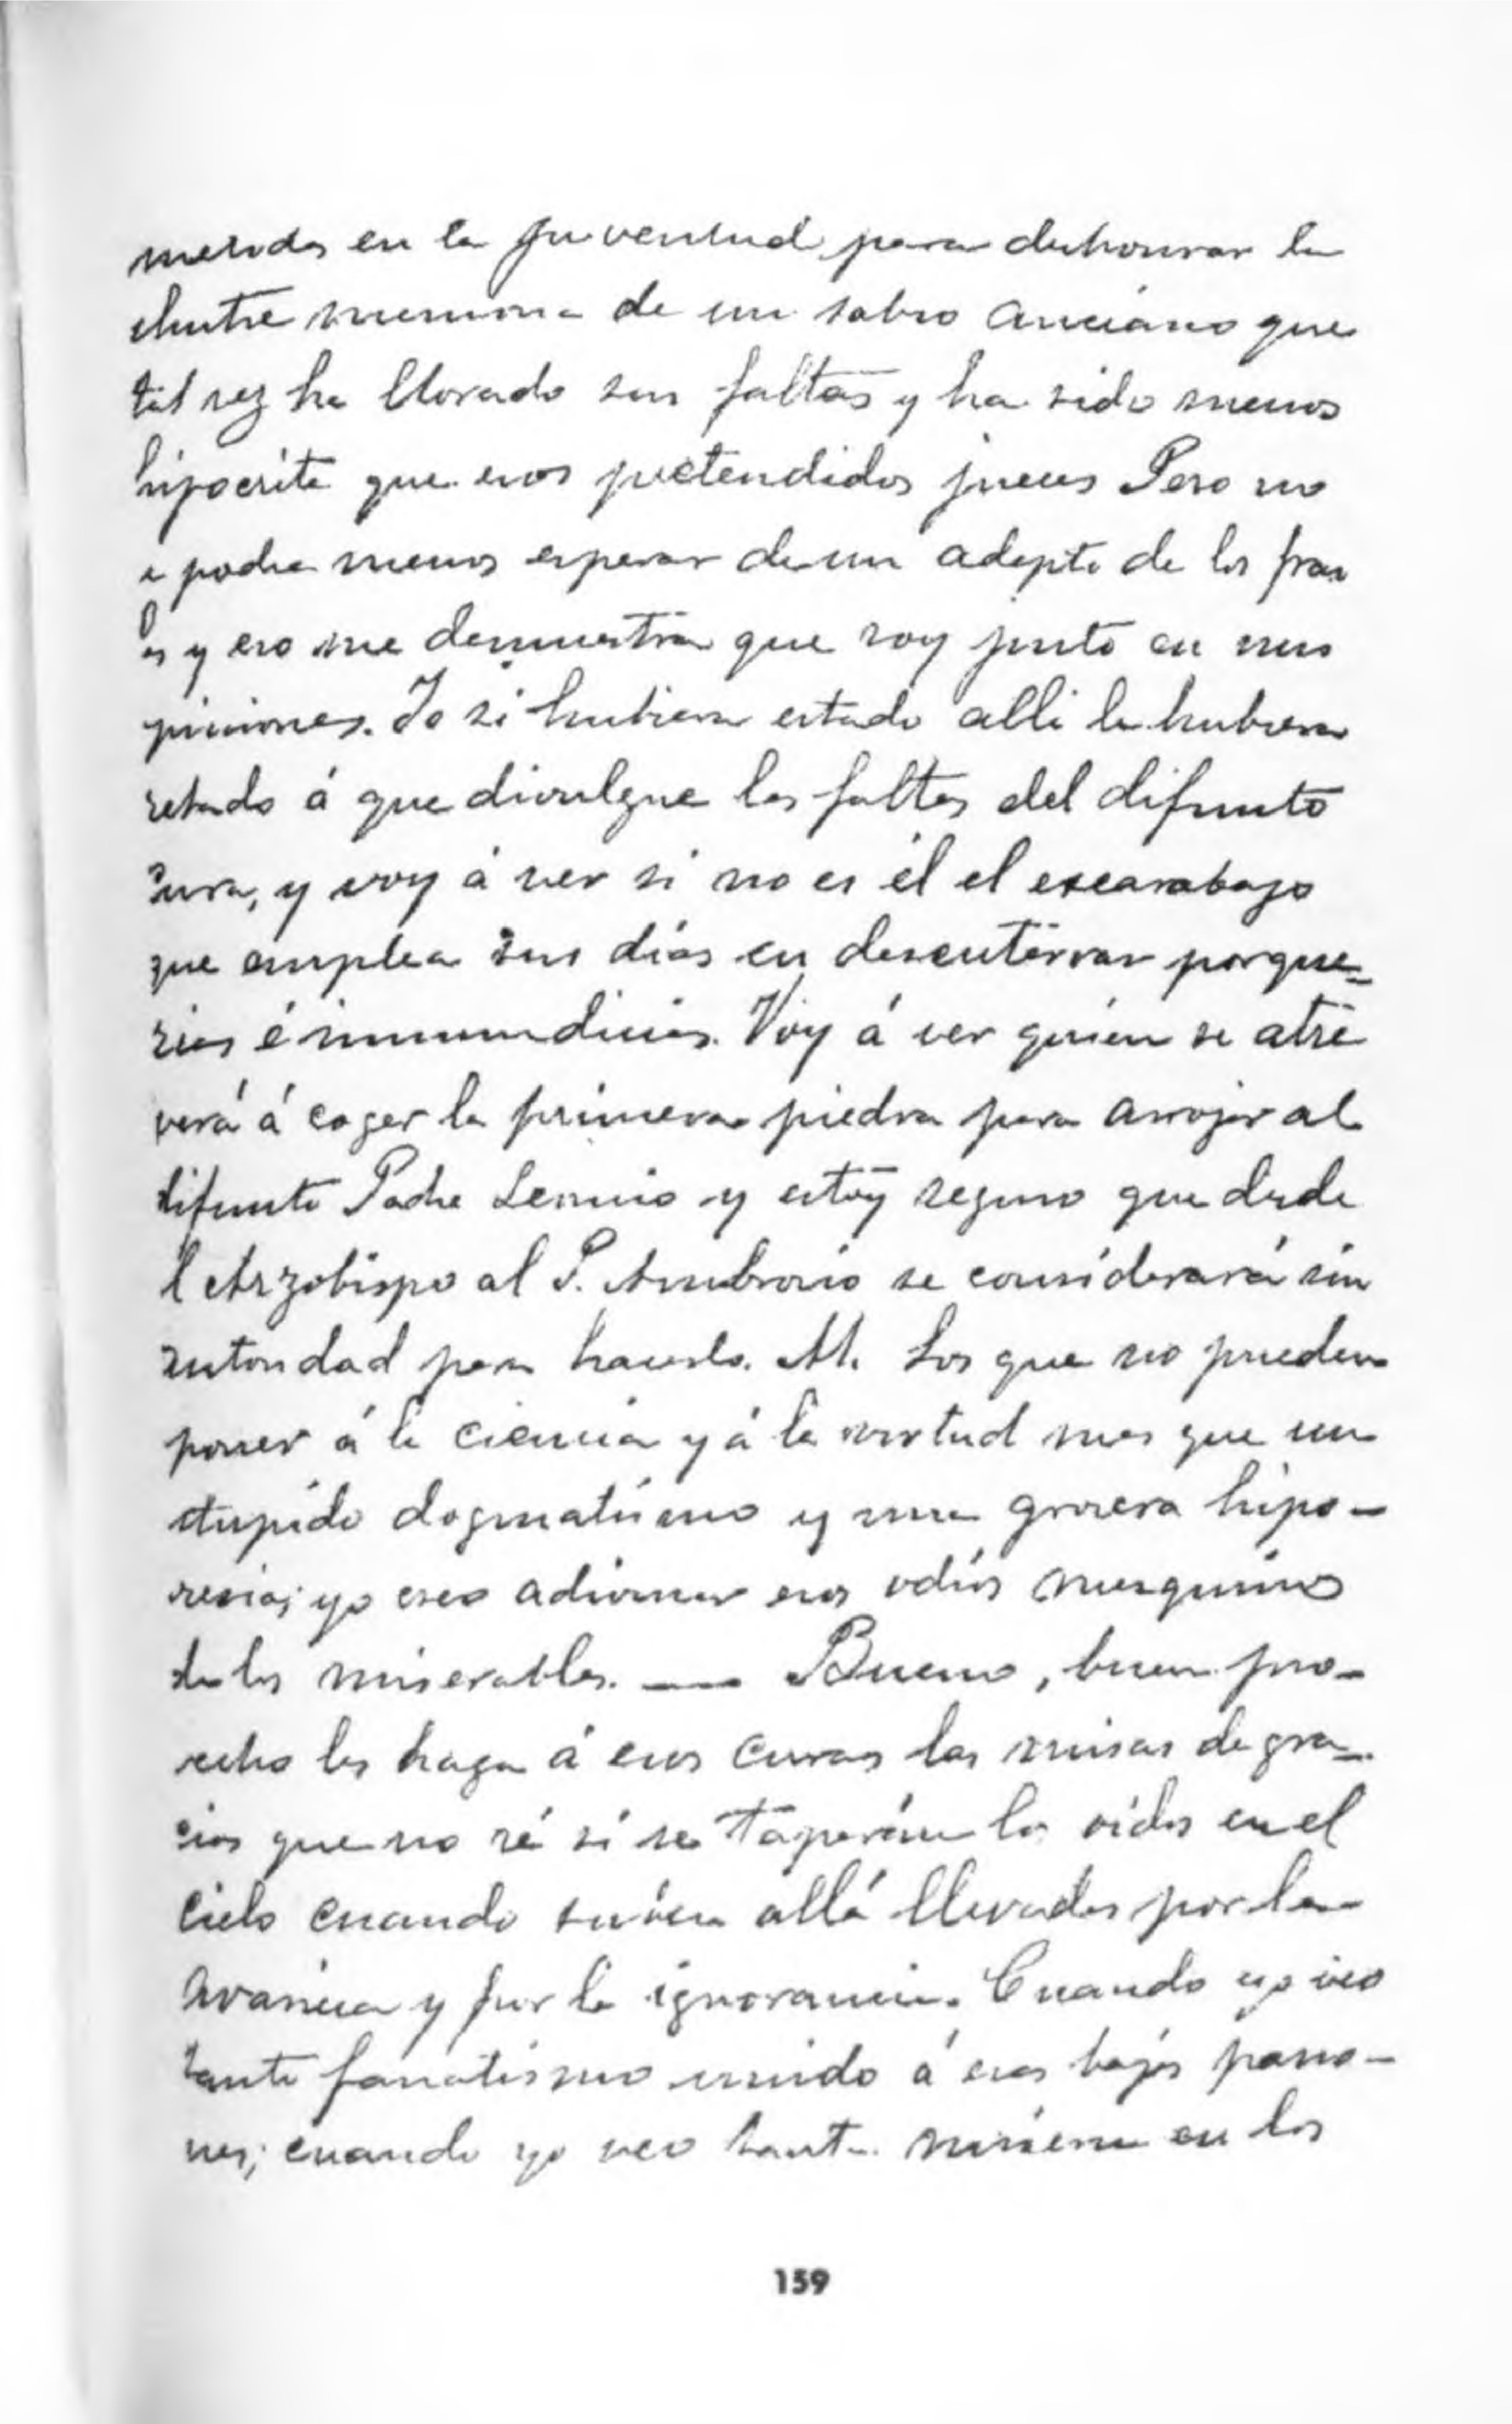 metidas en la juventud para deshonrar la
ilustre memoria de un sabio anciano que
tal vez ha llorado sus faltas y ha sido menos
hipocrita que esos pretendidos jueces Pero no
e podia menos esperar de un adepto de los frai
les y eso me demuestra que soy justo en mis
piniones. Yo si hubiera estado alli le hubiera
retado á que divulgue las faltas del difunto
Cura, y voy á ver si no es él el escarabajo
que emplea sus dias en desenterrar porque-
rias é inmundicias. Voy á ver quien se atre
verá á coger la primera piedra para arrojar al
difunto Padre Leoncio y estoy seguro que desde
l Arzobispo al P. Ambrosio se considerará sin
autoridad para hacerlo. Ah. Los que no pueden
poner á la ciencia y á la virtud mas que un
stupido dogmatismo y una grosera hipo-
cresia; yo creo adivinar esos odios mezquinos
de los miserables. — Bueno, buen pro-
vecho les haga á esos curas las misas de gra-
cias que no sé si se taparán los oidos en el
cielo cuando suben allá llevadas por la
avaricia y por la ignorancia. Cuando yo veo
tanto fanatismo unido á esas bajas pasio-
nes; cuando yo veo tanta miseria en los
159